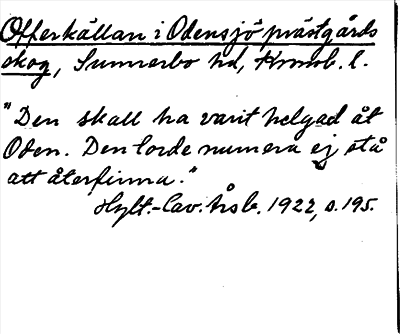 Offerkällan i Odensjö prästgårds
skog, Sunnerbo hd, Kronob. l.
"Den skall ha varit helgad åt
Oden. Den torde numera ej stå
att återfinna."
Hylt.-Cav. Årsb. 1922, s. 195.